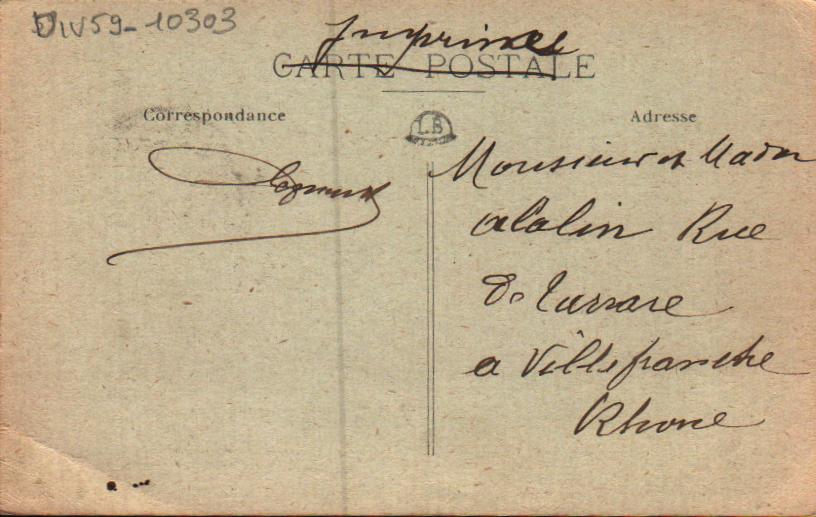 DIV59-10303
Imprimée
CARTE POSTALE
Correspondance
L.B
Adresse
Monsieur et Madam
Rue
De Tarrare
a Villefranche
Rhone